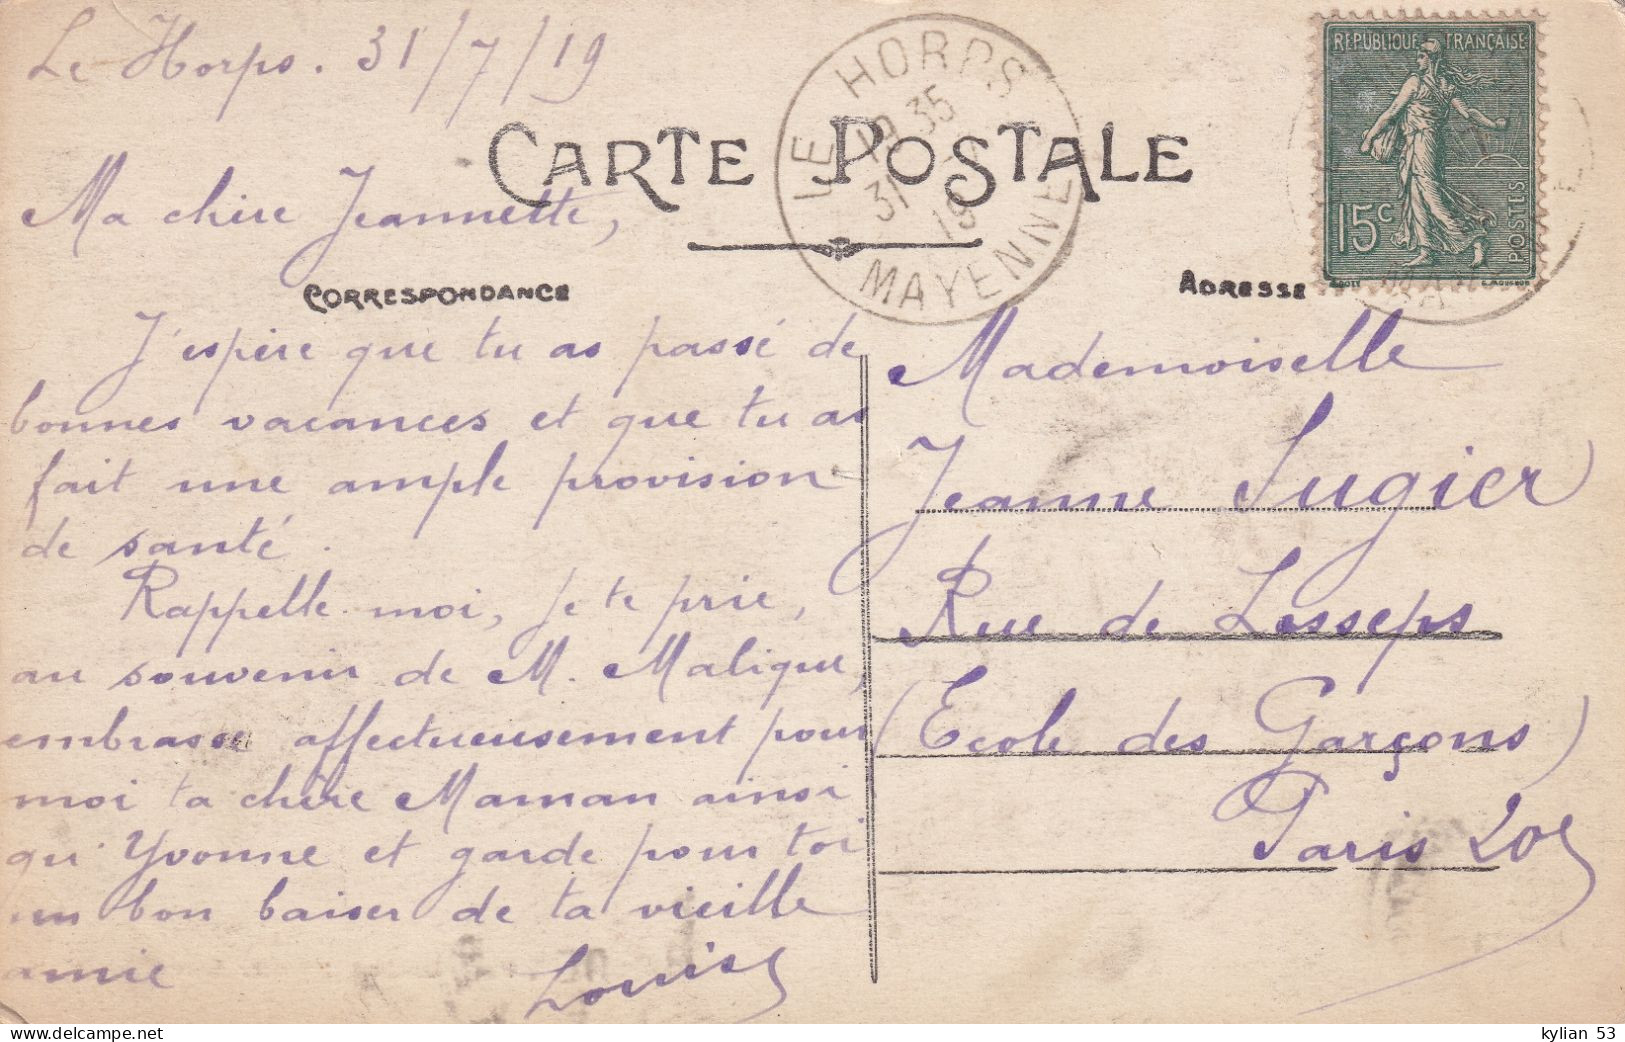 Le Horps. 31/7/19
CARTE POSTALE
LE HORPS
19 35
31
19
MAYENNE
REPUBLIQUE FRANÇAISE
15c
POSTES
Ma chère Jeannette,
CORRESPONDANCE
J'espère que tu as passé de
bonnes vacances et que tu as
fait une ample provision
de santé.
Rappelle-moi, je te prie,
au souvenir de M. Malique,
embrasse affectueusement pour
moi ta chère Maman ainsi
qu'Yvonne et garde pour toi
un bon baiser de ta vieille
amie
Louise
ADRESSE
Mademoiselle
Jeanne Sugier
Rue de Lesseps
(Ecole des Garçons)
Paris 20e
kylian 53